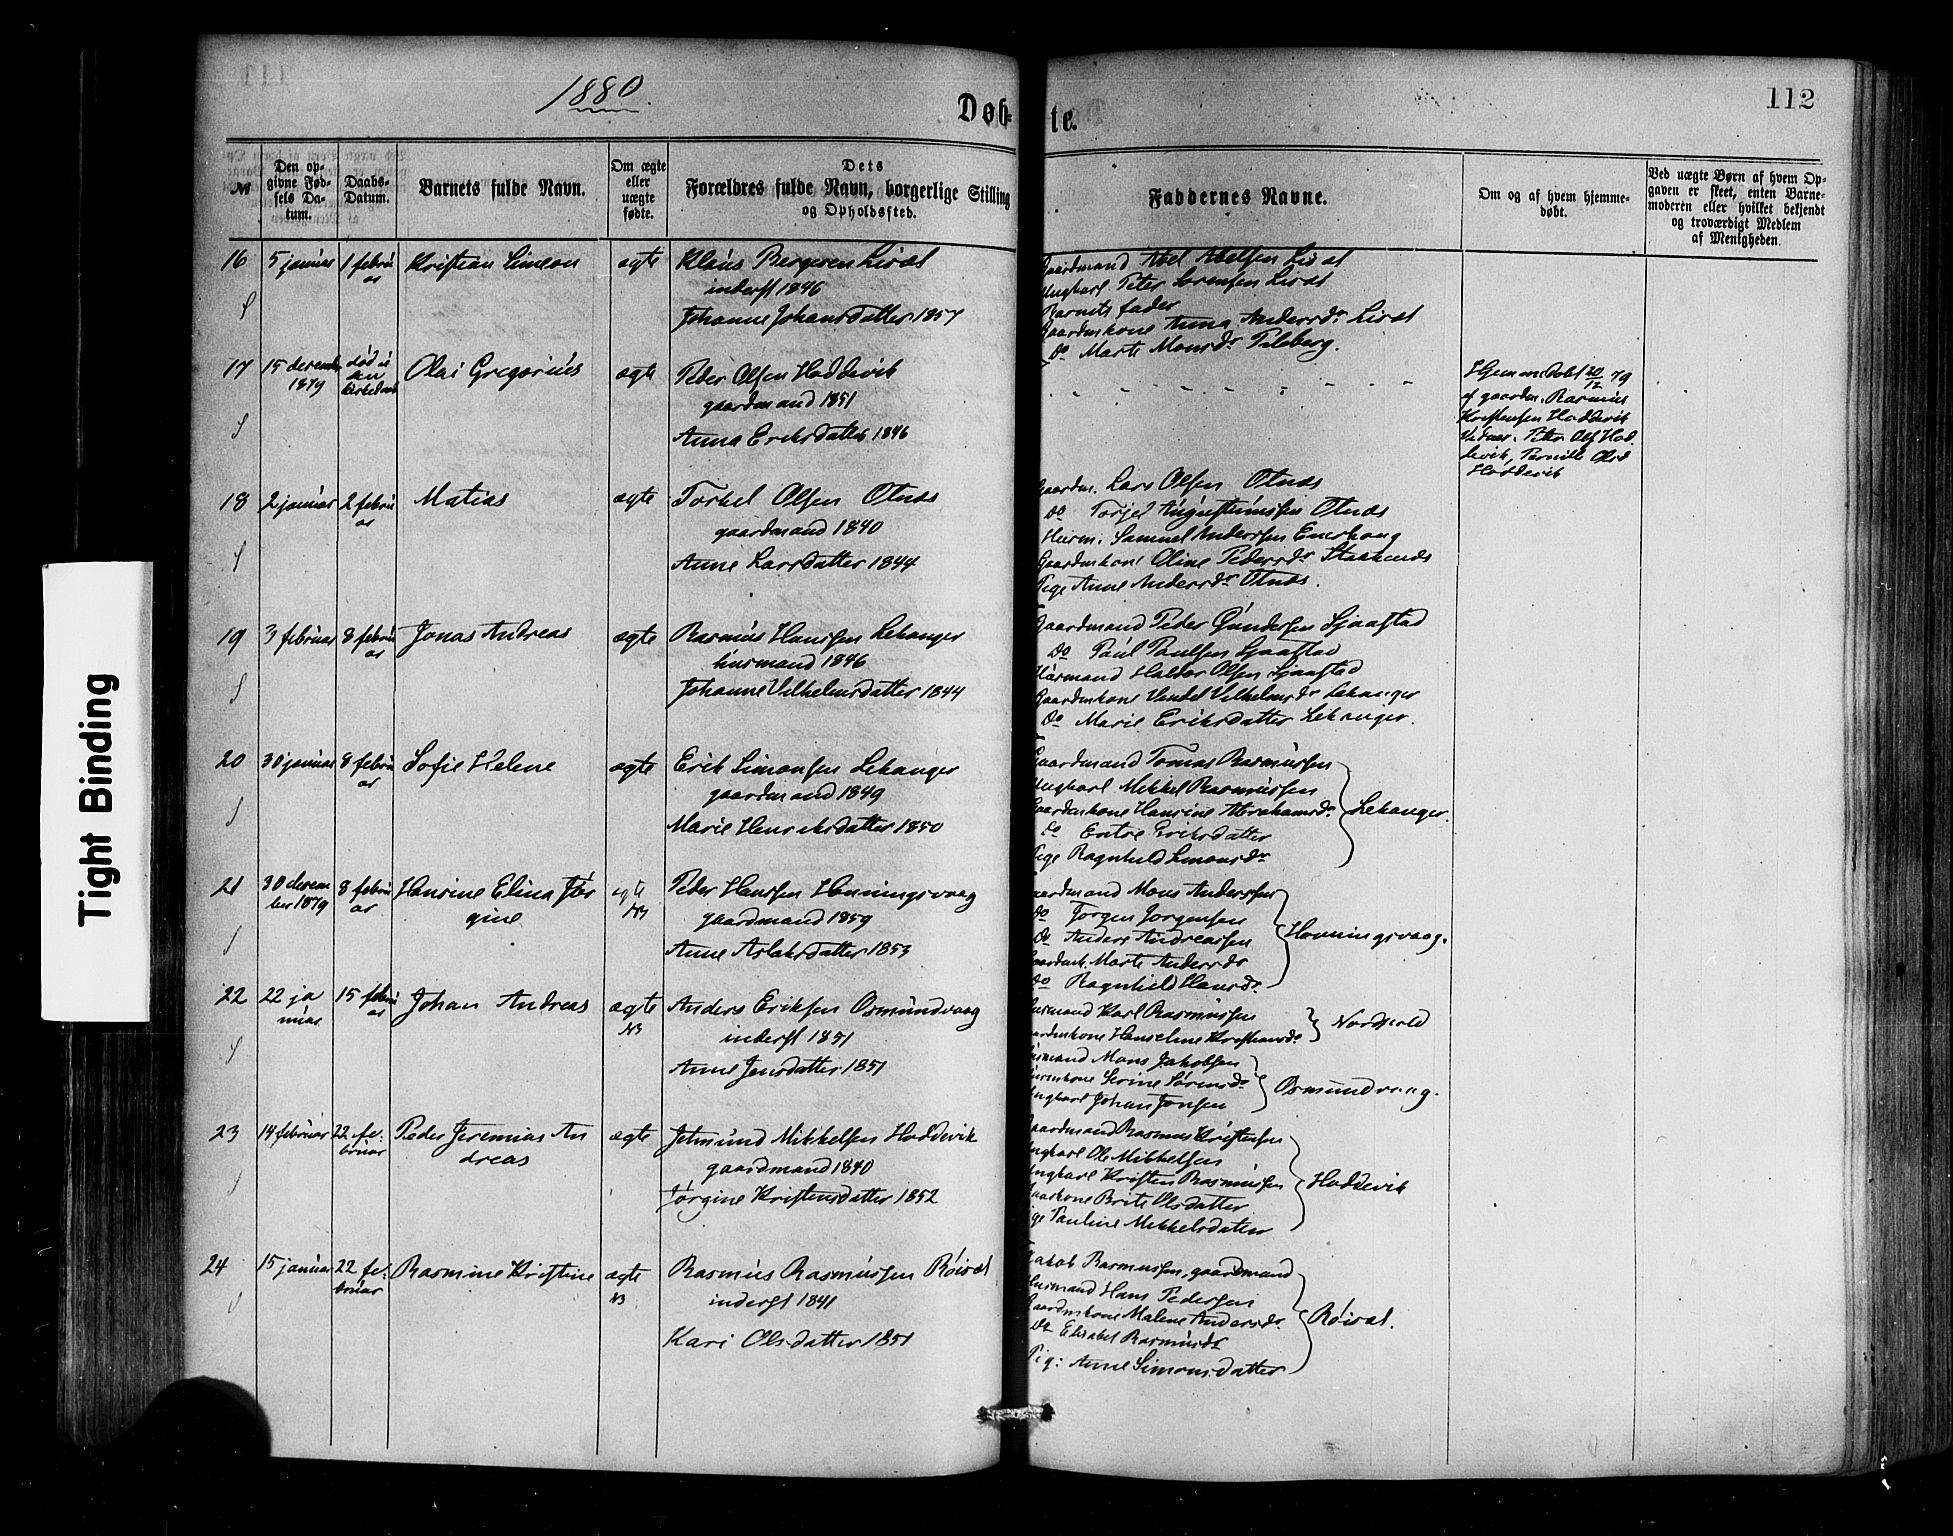 Tight Binding
1880.
Døb-
te.
112
№
Den op-
givne Fød-
sels Da-
tum.
Daabs-
Datum.
Barnets fulde Navn.
Om ægte
eller
uægte
fødte.
Dets
Forældres fulde Navn, borgerlige Stilling
og Opholdssted.
Faddernes Navne.
Om og af hvem hjemme-
døbt.
Ved uægte Børn af hvem Op-
gaven er skeet, enten Barne-
moderen eller hvilket bekjendt
og troværdigt Medlem
af Menigheden.
16
5 januar
1 febru
ar
Kristian Simeon
ægte
Klaus Bergesen Liset
inderst 1846
Johanne Johansdatter 1857
Gaardmand Abel Abelsen
Ungkarl Peter Sørensen
Barnets fader
Gaardmkone Anna Andersdr
Do Marte Monsdr
17
15 decemb
1879
død u
den
kirkedaab
Olai Gregorius
ægte
Peder Olsen Hoddevik
gaardmand 1851
Anna Eriksdatter 1846
Hjemmedøbt 20/12 79
af gaardm. Rasmus
Kristensen Hoddevik
Hoddevik
18
2 januar
2 febru
ar
Matias
ægte
Torkel Olsen Otnes
gaardmand 1840
Anne Larsdatter 1844
Gaardm. Lars Olsen Otnes
Do Augustinussen Otnes
Husm. Samuel Anderssen
Gaardmkone Oline Pedersdr
Pige Anne Andersdr Otnes.
19
3 februar
8 febru
ar
Jonas Andreas
ægte
Rasmus Hanssen Lekanger
husmand 1846
Johanne Vilhelmsdatter 1844
Gaardmand Peder Gundersen Sjaastad
Do Paul Paulsen Sjaastad
Husmand Haldor Olsen Sjaastad
Gaardmkone Vilhelmsdr Lekanger
Do Marie Eriksdatter Lekanger.
20
30 januar
8 febru
ar
Sofie Helene
ægte
Erik Simonsen Lekanger
gaardmand 1849
Marie Henriksdatter 1850
Gaardmand Tomas Rasmussen
Ungkarl Mikkel Rasmussen
Gaardmkone Hansine Abrahamsdr
Lekanger.
Do Eriksdatter
Pige Ragnhild Simonsdr
21
30 decem
ber 1879
8 febru
ar
Hansine Elina Jør
gine
ægte
NB
Peder Hanssen Honningsvaag
gaardmand 1859
Anne Aslaksdatter 1853
Gaardmand Mons Anderssen
Do Jørgen Jørgensen
Do Anders Andreassen
Honningsvaag.
Gaardmk. Marte Andersdr
Do Ragnhild Hansdr.
22
22 ja
nuar
15 febru
ar
Johan Andreas
ægte
NB
Anders Eriksen Osmundvaag
inderst 1851
Anne Jensdatter 1851
Husmand Karl Rasmussen
Gaardmkone Hanseline Kristiansdr
Husmand Mons Jakobsen
Husmkone Serine Sørensdr
Osmundvaag.
Ungkarl Johan Jonsen
23
14 februar
22 fe-
bruar
Peder Jeremias An
dreas
ægte
Jetmund Mikkelsen Hoddevik
gaardmand 1840
Jørgine Kristensdatter 1852
Gaardmand Rasmus Kristensen
Ungkarl Ole Mikkelsen
Ungkarl Kristen Rasmussen
Hoddevik
Brite Olsdatter
Pige Pauline Mikkelsdatter
24
15 januar
22 fe-
bruar
Rasmine Kristine
ægte
NB
Rasmus Rasmussen Røiset
inderst 1841
Kari Olsdatter 1851
Jakob Rasmussen, gaardmand
Husmand Hans Pedersen
Gaardmkone Malene Andersdr.
Røiset.
Do Elisabet Rasmusdr
Pige Anne Simonsdatter